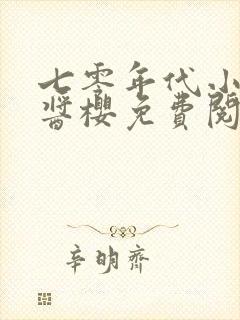 七零年代小
酱樱免费阅
辛明齐